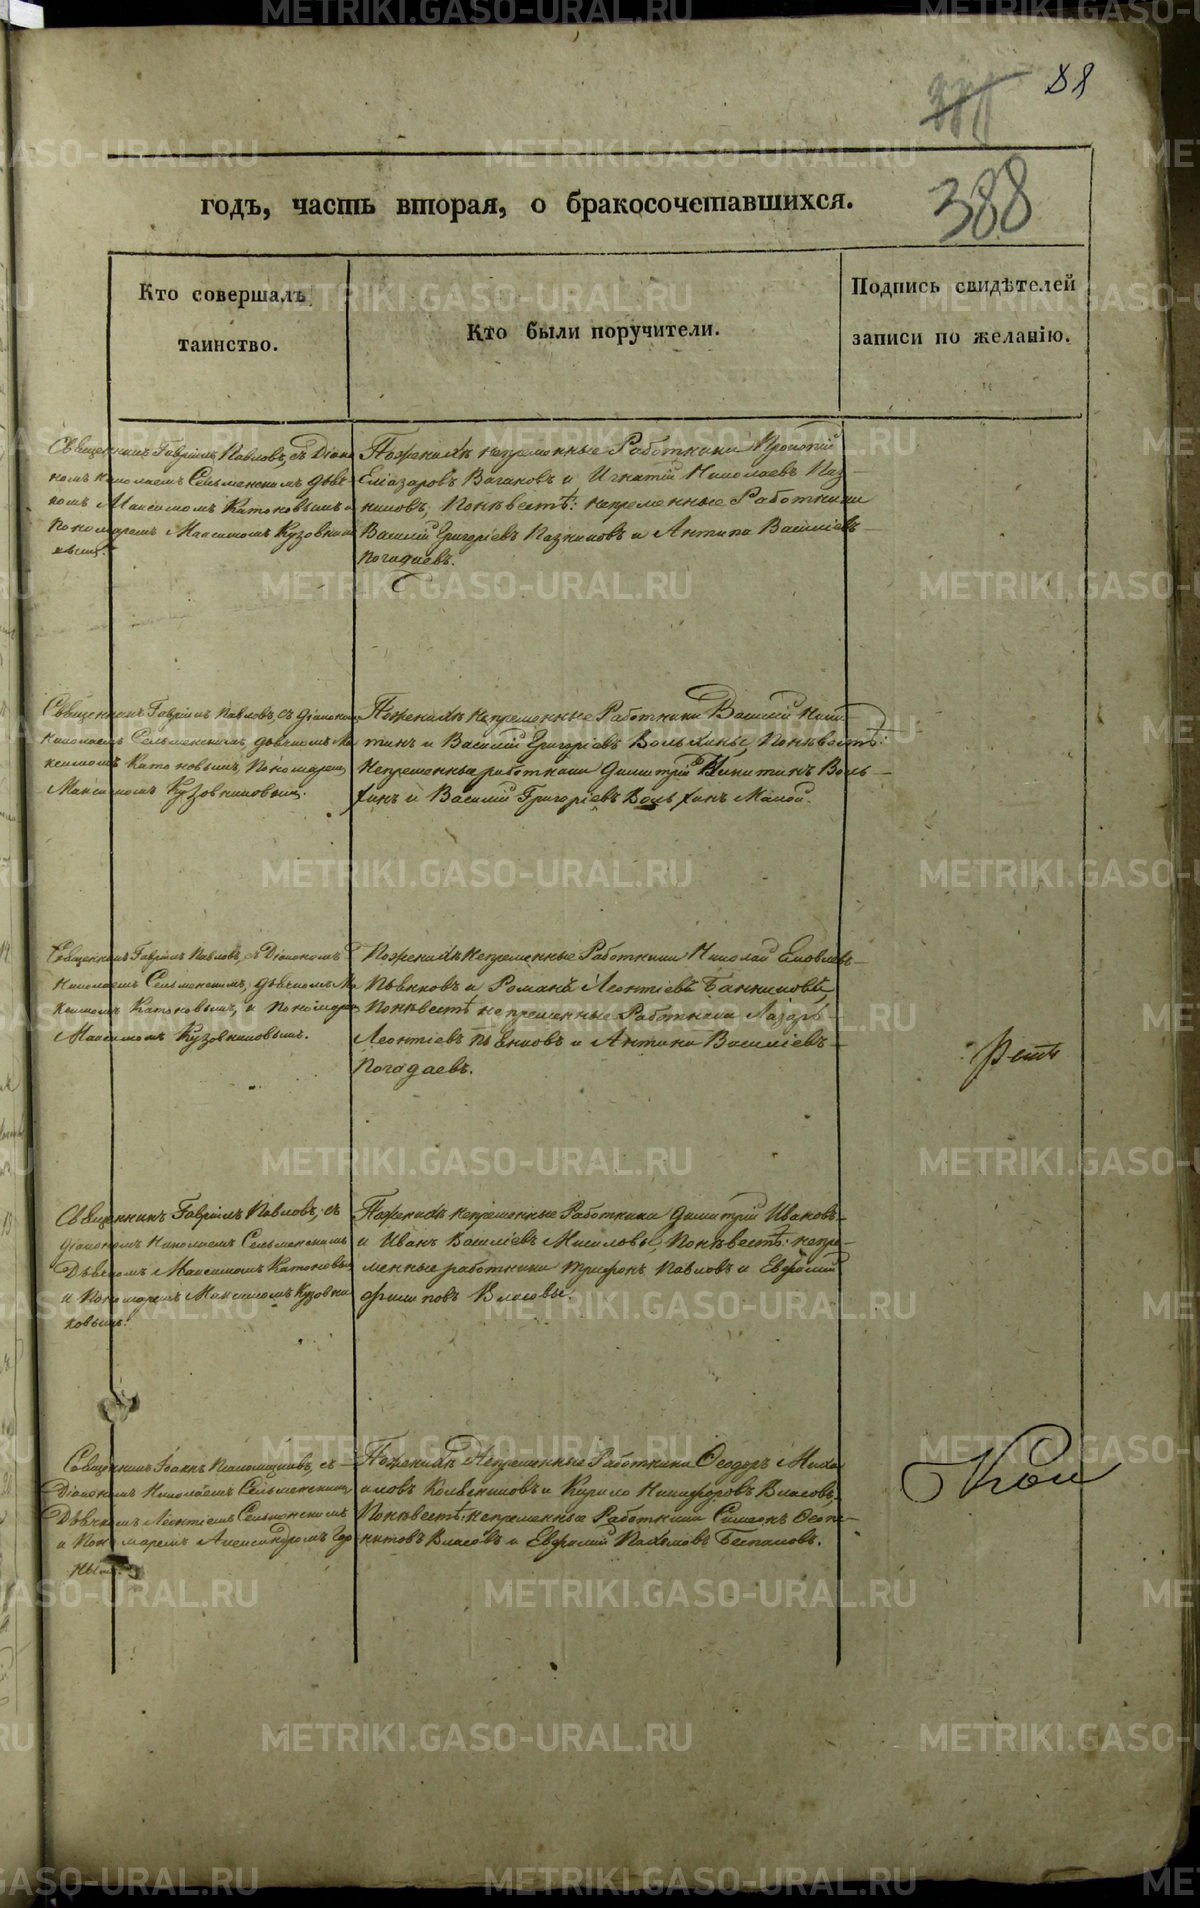 88
388
годъ, часть вторая, о бракосочетавшихся.
Кто совершалъ
таинство.
Кто были поручители.
Подпись свидѣтелей
записи по желанію.
Священникъ Гавріилъ Павловъ, съ Діако
номъ Николаемъ Сельменскимъ дьяч
комъ Максимомъ Катоковымъ и
Пономаремъ Максимомъ Кузовнико
вымъ.
По женихѣ непременные Работники
Еліазаровъ Вагановъ и Игнатій Николаевъ Каз
никовъ, По невестѣ: непременные Работники
Василій Григорьевъ Казниковъ и Антипа Василіевъ
Погадаевъ.
Священникъ Гавріилъ Павловъ, съ діакономъ
Николаемъ Сельменскимъ, дьячкомъ Ма
ксимомъ Катоковымъ, Пономаремъ
Максимомъ Кузовниковымъ.
По женихѣ непременные Работники Василій Ники
тинъ и Василій Григорьевъ Вольхины, По невестѣ:
непременные работники Димитрій Никитинъ Воль
хинъ и Василій Григорьевъ Вольхинъ Малой.
Священникъ Гавріилъ Павловъ, съ Діакономъ
Николаемъ Сельменскимъ, дьячкомъ Ма
ксимомъ Катоковымъ, и Пономаремъ
Максимомъ Кузовниковымъ.
По женихѣ непременные Работники Николай Яковлевъ
Пьянковъ и Романъ Леонтіевъ Банниковъ
По невестѣ непременные Работники Лазарь
Леонтіевъ Пьянковъ и Антипа Василіевъ
Погадаевъ.
Священникъ Гавріилъ Павловъ, съ
діакономъ Николаемъ Сельменскимъ
Дьячкомъ Максимомъ Катоковымъ
и Пономаремъ Максимомъ Кузовни
ковымъ.
По женихѣ непременные Работники Димитрій Ивановъ
и Иванъ Василіевъ По невестѣ: непре
менные работники Трифонъ Павловъ и Евфимій
Филиповъ Власовы.
Священникъ Іоаннъ съ
Діакономъ Николаемъ Сельменскимъ
Дьячкомъ Леонтіемъ Сельменскимъ
и Пономаремъ Александромъ Гор
нымъ.
По женихѣ Непременные Работники Ѳеодоръ Миха
иловъ и Кирило Никифоровъ Власовъ,
По невестѣ: непременные Работники Симеонъ Ѳеог
нитовъ Власовъ и Евфимій Пахомовъ Беспаловъ.
METRIKI.GASO-URAL.RU